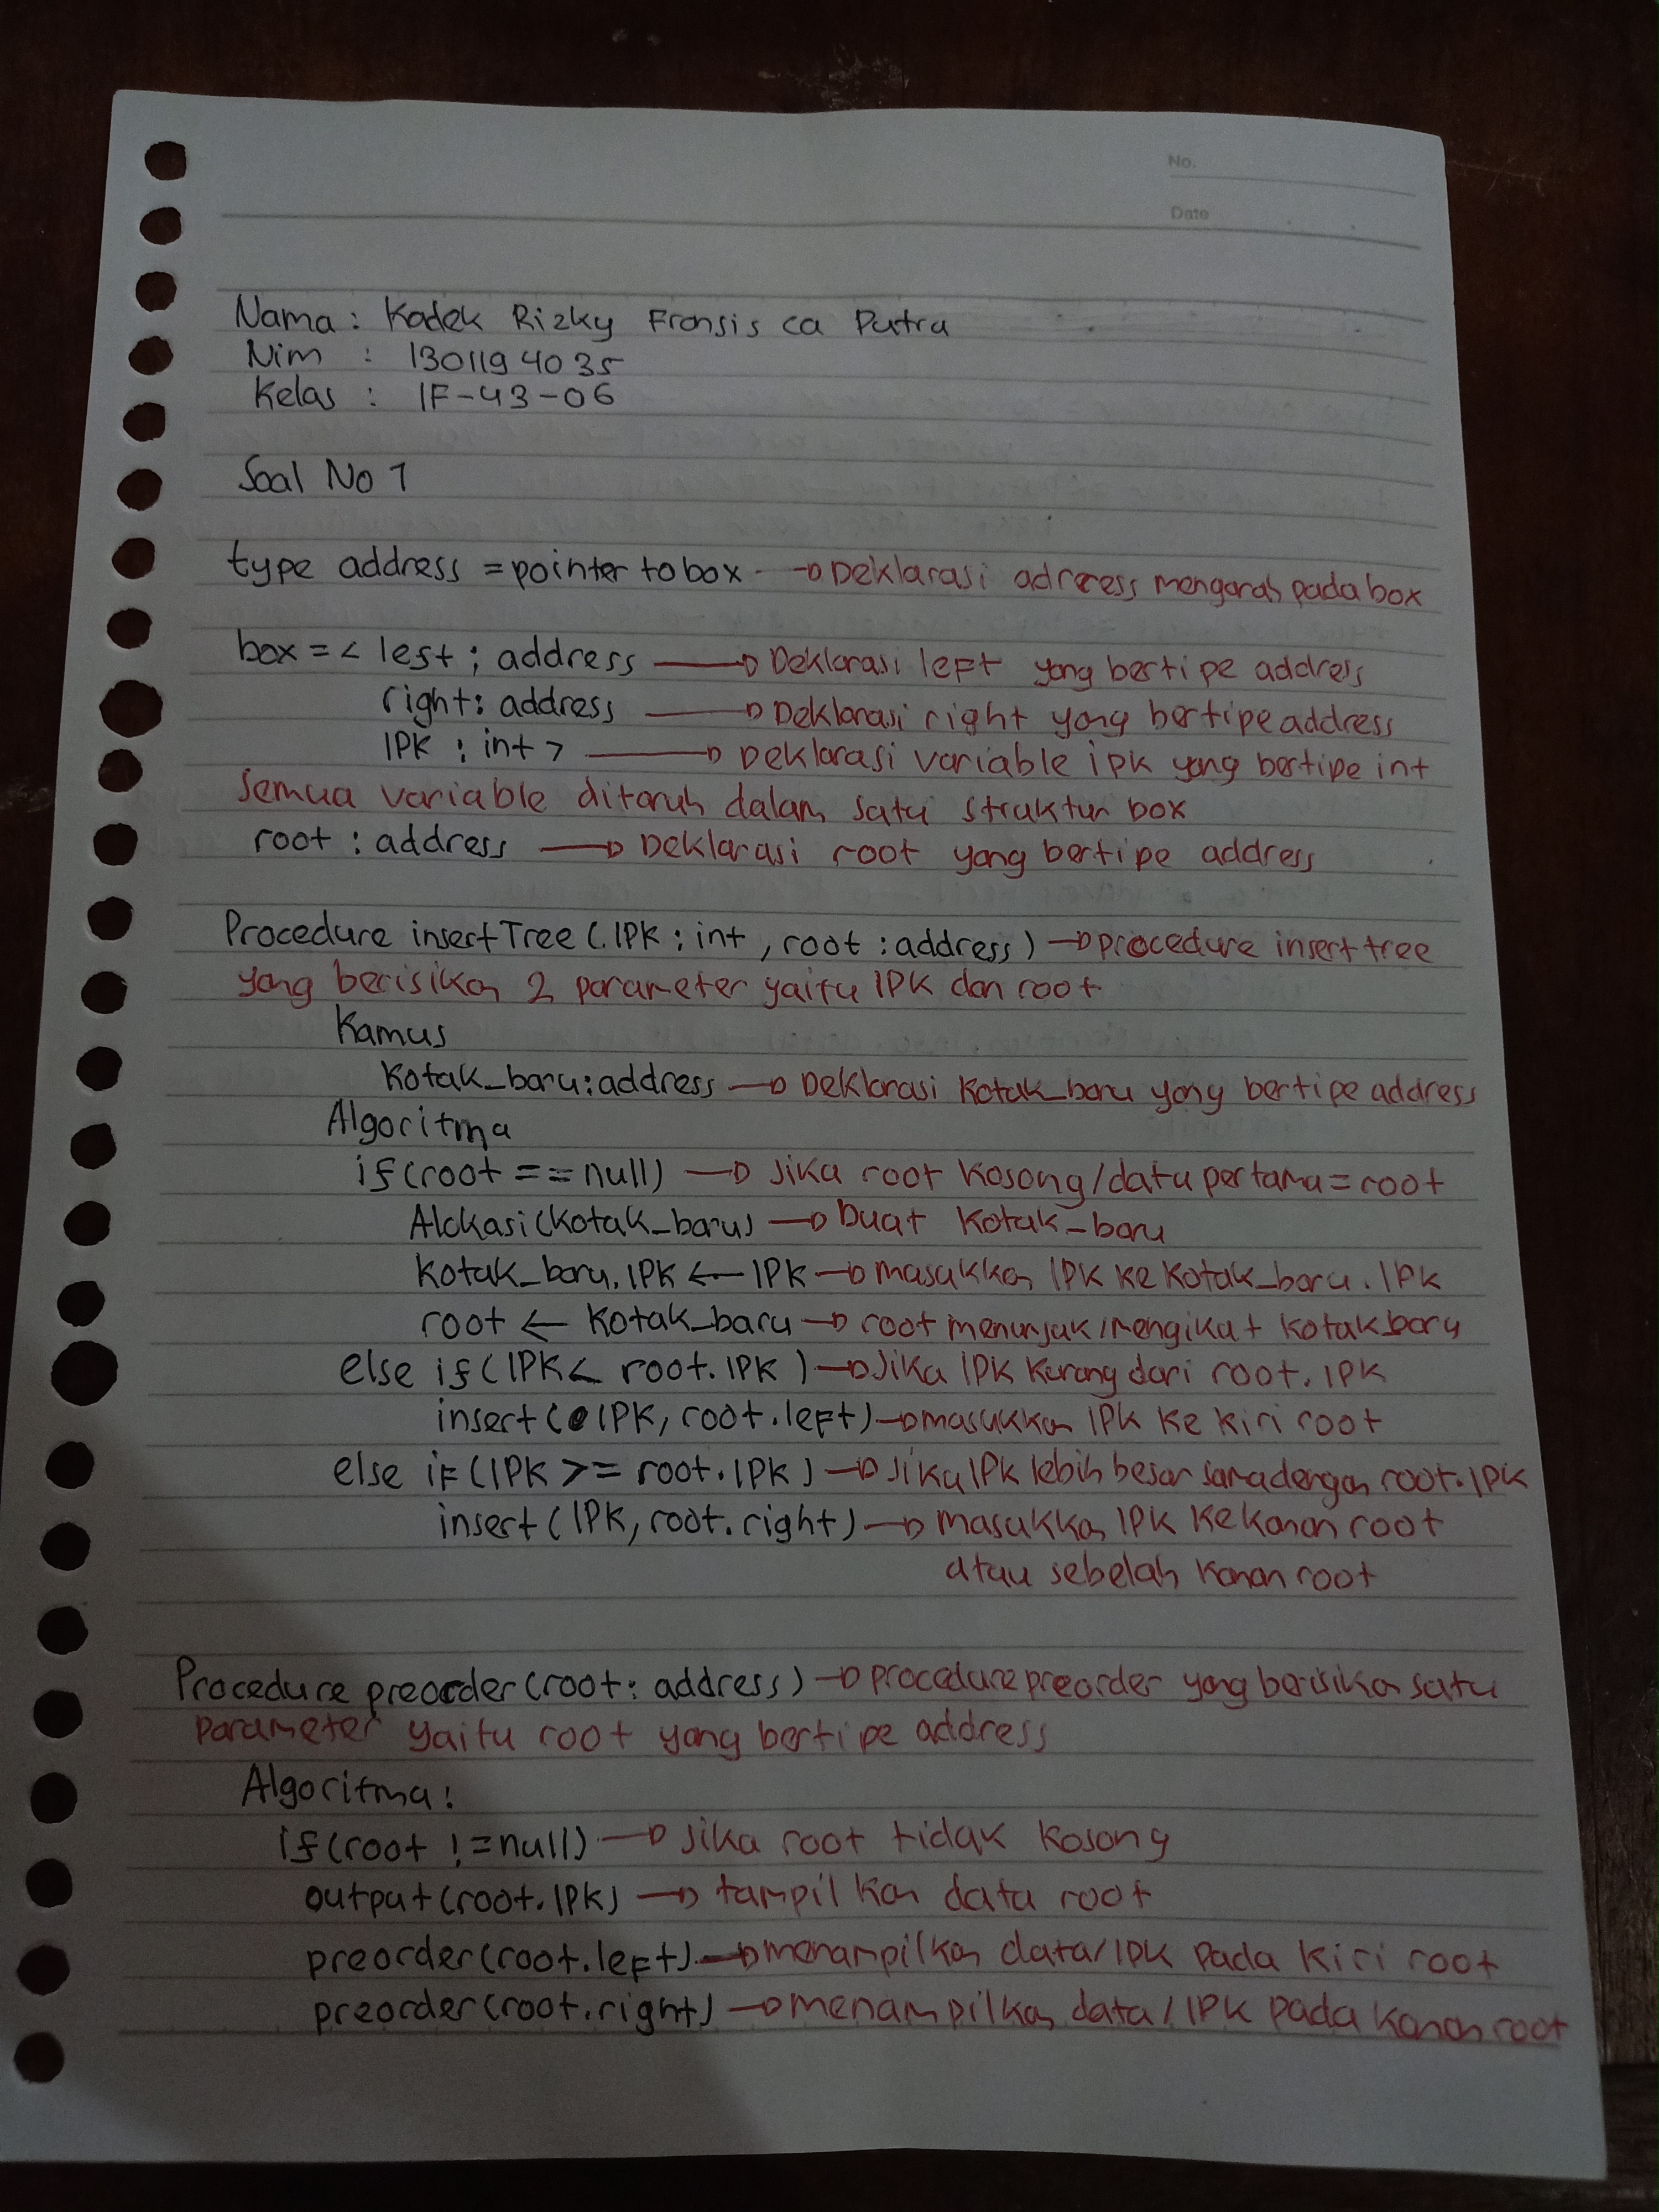 No.
Date
Nama : Kadek Rizky Fransis ca Putra
Nim : 1301194035
Kelas : IF-43-06
Soal No 1
type address = pointer to box → Deklarasi adrress mengarah pada box
box = < lest ; address → Deklarasi left yang bertipe address
right : address → Deklarasi right yang bertipe address
IPK : int > → Deklarasi variable ipk yang bertipe int
semua variable ditaruh dalam satu struktur box
root : address → Deklarasi root yang bertipe address
Procedure insertTree (IPK : int , root : address) → procedure insert tree
yang berisikan 2 parameter yaitu IPK dan root
Kamus
Kotak_baru : address → Deklarasi Kotak_baru yang bertipe address
Algoritma
if (root == null) → Jika root kosong/data pertama = root
Alokasi (kotak_baru) → buat kotak_baru
kotak_baru.IPK ← IPK → masukkan IPK ke kotak_baru.IPK
root ← kotak_baru → root menunjuk/mengikat kotak baru
else if (IPK < root.IPK) → Jika IPK kurang dari root.IPK
insert (IPK, root.left) → masukkan IPK ke kiri root
else if (IPK >= root.IPK) → Jika IPK lebih besar sama dengan root.IPK
insert (IPK, root.right) → masukkan IPK ke kanan root
atau sebelah kanan root
Procedure preorder (root : address) → procedure preorder yang berisikan satu
parameter yaitu root yang bertipe address
Algoritma :
if (root != null) → Jika root tidak kosong
output (root.IPK) → tampilkan data root
preorder (root.left) → menampilkan data/IPK pada kiri root
preorder (root.right) → menampilkan data/IPK pada kanan root